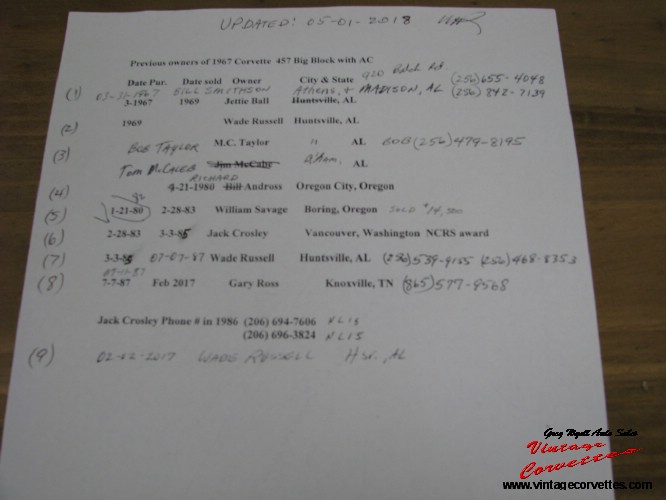 UPDATED! 05-01-2018
Previous owners of 1967 Corvette 457 Big Block with AC
Date Pur. Date sold Owner City & State 920 Balch Rd
(1) 03-31-1967 BILL SMITHSON Athens, + MADISON, AL (256) 655-4048
3-1967 1969 Jettie Ball Huntsville, AL (256) 842-7139
(2) 1969 Wade Russell Huntsville, AL
(3) BOB TAYLOR M.C. Taylor " AL BOB (256) 479-8195
Tom McCALEB Jim McCabe AL
RICHARD
(4) 4-21-1980 Bill Andross Oregon City, Oregon
82
(5) 1-21-80 2-28-83 William Savage Boring, Oregon SOLD $14,500
(6) 2-28-83 3-3-85 Jack Crosley Vancouver, Washington NCRS award
(7) 3-3-85 07-07-87 Wade Russell Huntsville, AL (256) 539-9155 (256) 468-8353
07-07-87
(8) 7-7-87 Feb 2017 Gary Ross Knoxville, TN (865) 577-9568
Jack Crosley Phone # in 1986 (206) 694-7606 NLIS
(206) 696-3824 NLIS
(9) 02-02-2017 WADE RUSSELL HSV, AL
Greg Wyatt Auto Sales
Vintage
Corvettes
www.vintagecorvettes.com